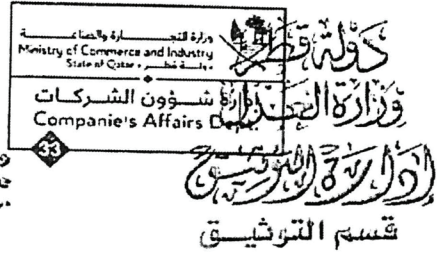 وزارة التجـــارة والصناعـــة
Ministry of Commerce and Industry
State of Qatar • دولـة قطـر
إدارة شــؤون الشـركـات
Companie's Affairs Dept
33
دولة قطر
وزارة العدل
إدارة التوثيق
قسم التوثيــق